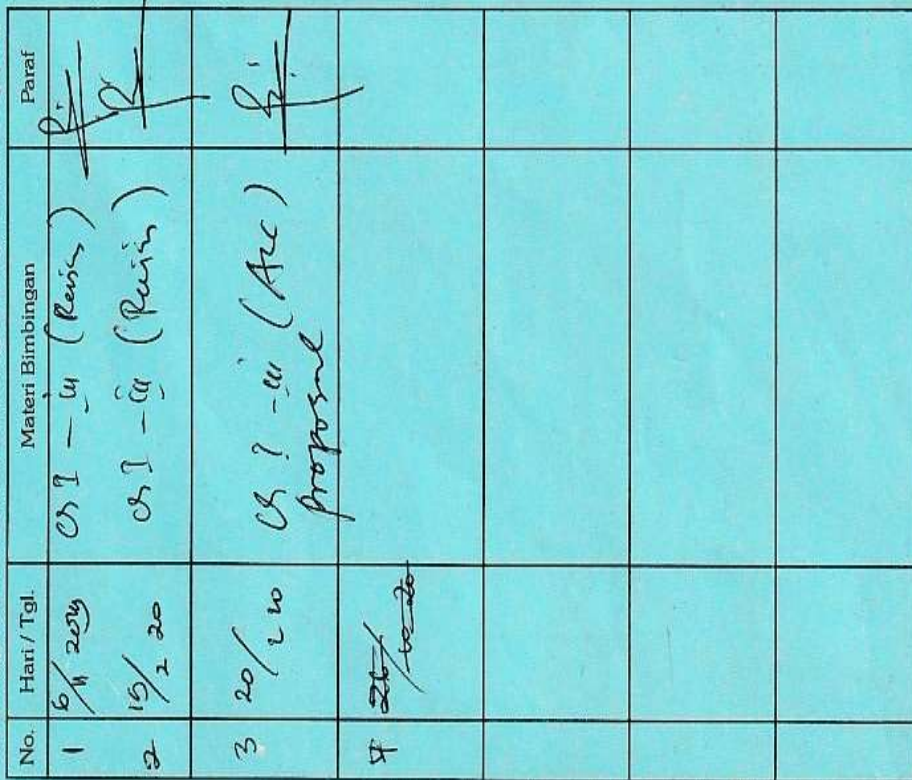 No. Hari / Tgl. Materi Bimbingan Paraf
1 6/11 2019 I - iii (Revisi)
2 15/2 20 I - iii (Revisi)
3 20/2 20 - iii (Acc)
proposal
4